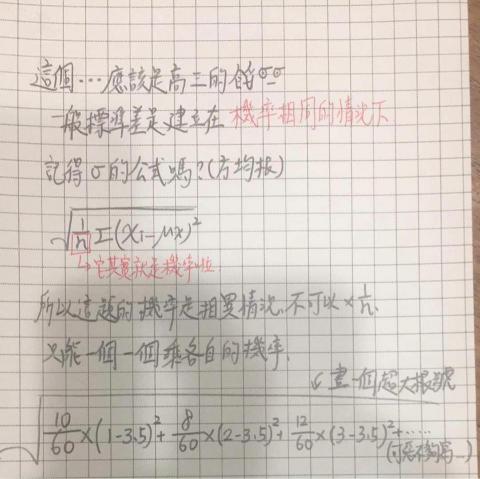 這個…應該是高三的餒σσ
一般標準差是建立在機率相同的情況下
記得σ的公式嗎?(方均根)
√(1/n Σ(x₁-μx)²
↳它其實就是機率啦
所以這題的機率是相異情況,不可以×1/n,
只能一個一個乘各自的機率,
↙畫一個超大根號
√(10/60×(1-3.5)²+8/60×(2-3.5)²+12/60×(3-3.5)²+……
(可惡不夠寫…)